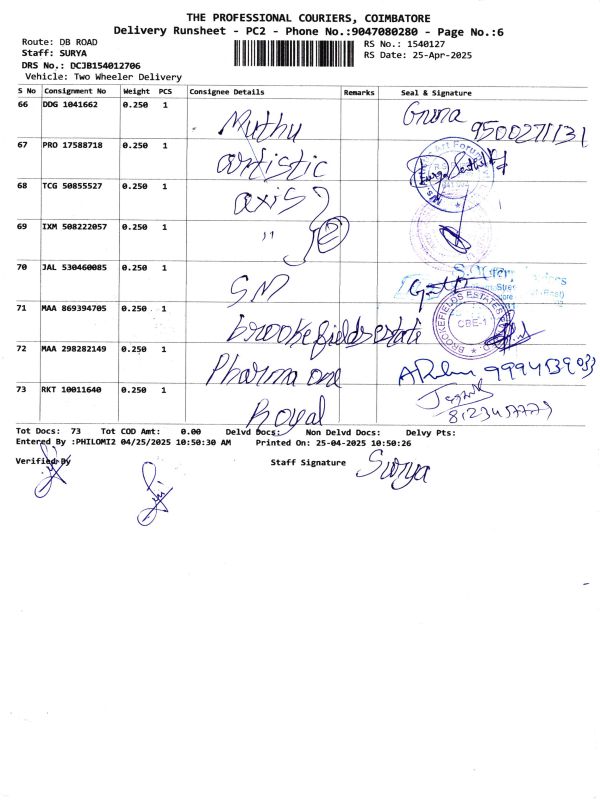 THE PROFESSIONAL COURIERS, COIMBATORE
Delivery Runsheet - PC2 - Phone No.:9047080280 - Page No.:6
Route: DB ROAD
RS No.: 1540127
Staff: SURYA
RS Date: 25-Apr-2025
DRS No.: DCJB154012706
Vehicle: Two Wheeler Delivery
S No Consignment No Weight PCS Consignee Details Remarks Seal & Signature
66 DDG 1041662 0.250 1 Muthu 9500271131
67 PRO 17588718 0.250 1 artistic
68 TCG 50855527 0.250 1 axis
69 IXM 508222057 0.250 1 " 2
70 JAL 530460085 0.250 1 SM
71 MAA 869394705 0.250 1 brookefieldsestate BROOKEFIELDS ESTATES CBE-1
72 MAA 298282149 0.250 1 Pharma one
73 RKT 10011640 0.250 1 Royal
Tot Docs: 73 Tot COD Amt: 0.00 Delvd Docs: Non Delvd Docs: Delvy Pts:
Entered By :PHILOMI2 04/25/2025 10:50:30 AM Printed On: 25-04-2025 10:50:26
Verified By Staff Signature Surya